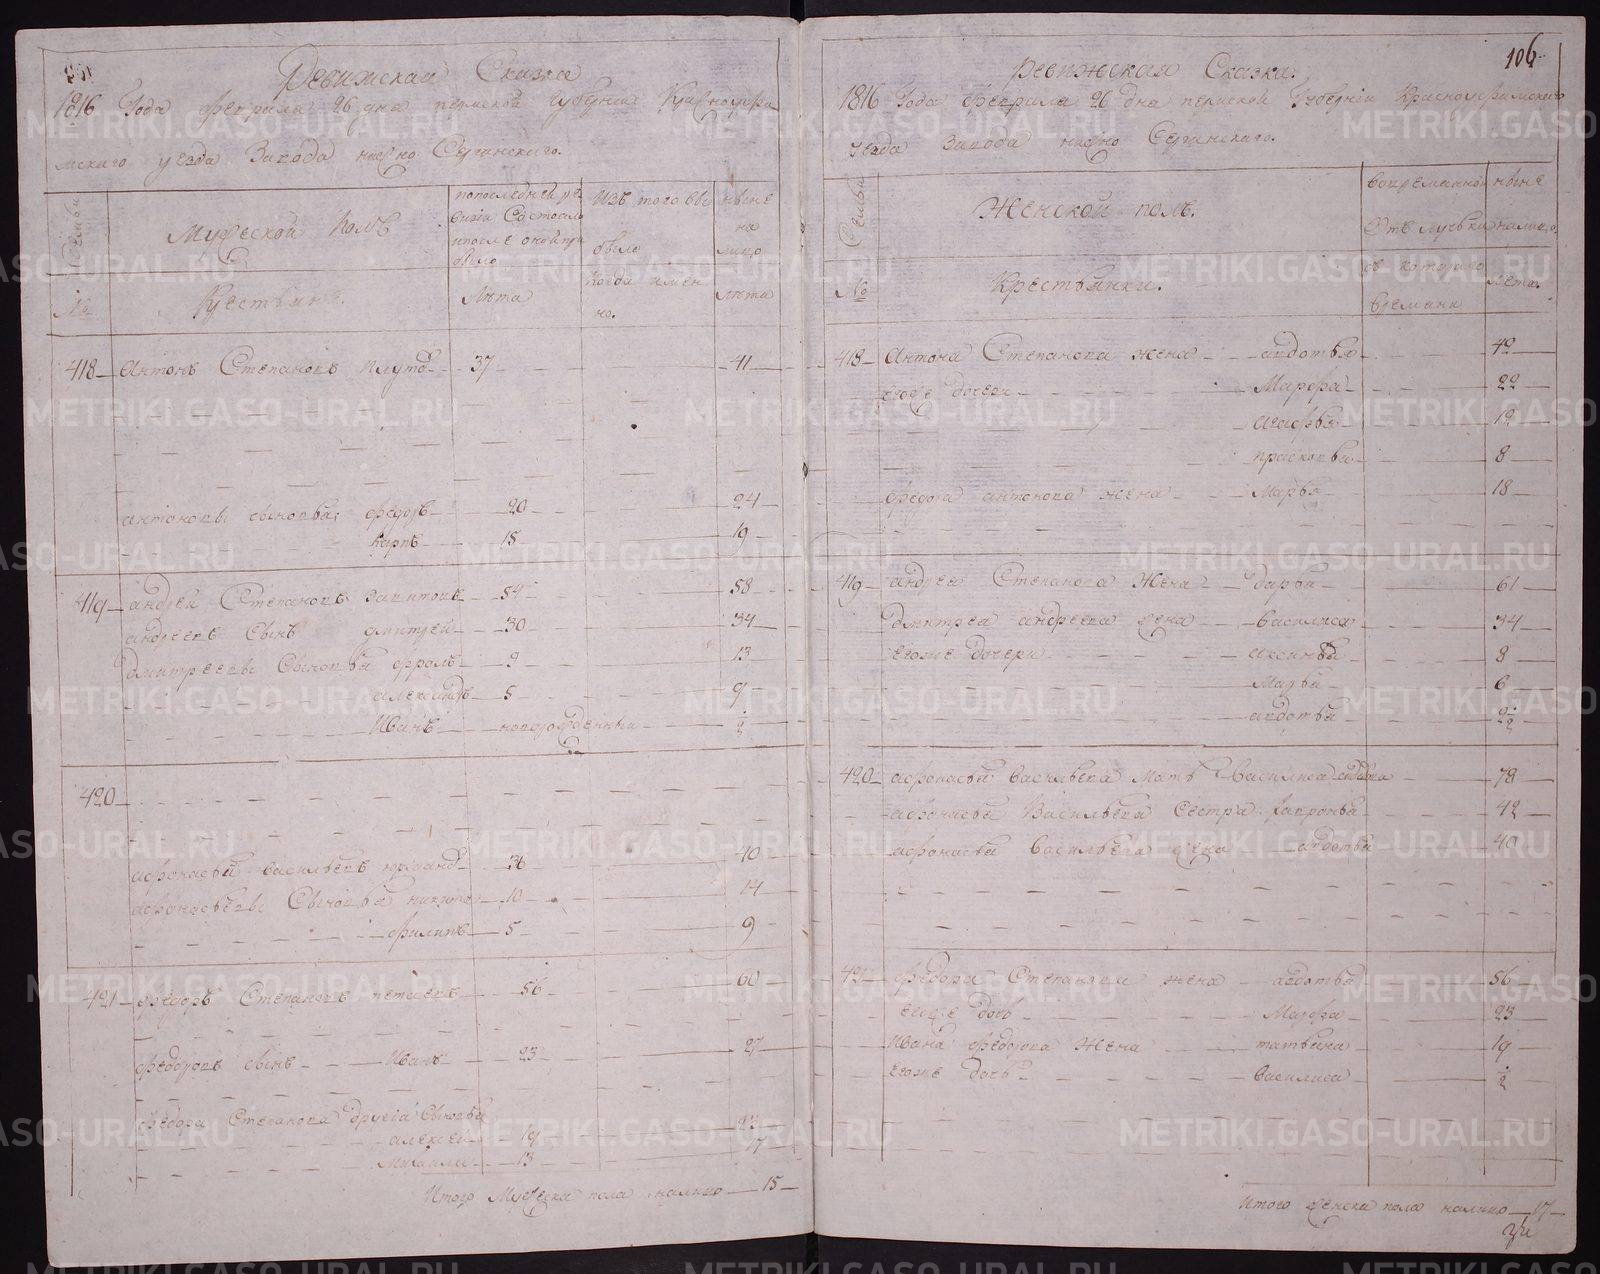 Ревижская Сказка
1816 Года февраля 26 дня пермской Губернiи Красноуфи
мскаго уезда Завода нижно Сергинскаго.
Семьи
Мужеской полъ
попоследней ре
визiи Состояло
ипосле оной при
было
Изъ того вы
было
ныне
на
лицо
№
Крестьяне.
Лѣта
когда имен
но.
лѣта
418 Антонъ Степановъ 37 41
антоновы сыновья федоръ 20 24
карпъ 15 19
419 андрей Степановъ 54 58
андреевъ Сынъ дмитрей 30 34
дмитреевы Сыновья фролъ 9 13
александръ 5 9
Иванъ новорожденный ½
420
афонасей васильевъ 36 40
афонасьевы Сыновья никита 10 14
филипъ 5 9
421 федоръ Степановъ 56 60
федоровъ сынъ Иванъ 23 27
федора Степанова другiя Сыновья
алексей 19 23
Михайло 13 17
Итого Мужеска пола налицо 15
106
Ревижская Сказка.
1816 Года февраля 26 дня пермской Губернiи Красноуфимскаго
уезда Завода нижно Сергинскаго.
Семьи
Женской полъ.
вовременной
Отлучьки
ныне
налицо
№
Крестьянки.
съ котораго
времяни
лета.
418 Антона Степанова жена авдотья 42
егоже дочери Марфа 22
агафья 12
прасковья 8
федора антонова жена Марья 18
419 андрея Степанова Жена дарья 61
дмитрея андреева жена василиса 34
егоже дочери аксинья 8
Марья 6
авдотья ½
420 афонасья васильева мать василиса 78
афонасья Васильева Сестра 42
афонасья васильева жена авдотья 40
421 федора Степанова жена авдотья 56
егоже дочь Марфа 23
Ивана федорова Жена татьяна 19
егоже дочь василиса ½
Итого женска пола налицо 17
METRIKI.GASO-URAL.RU